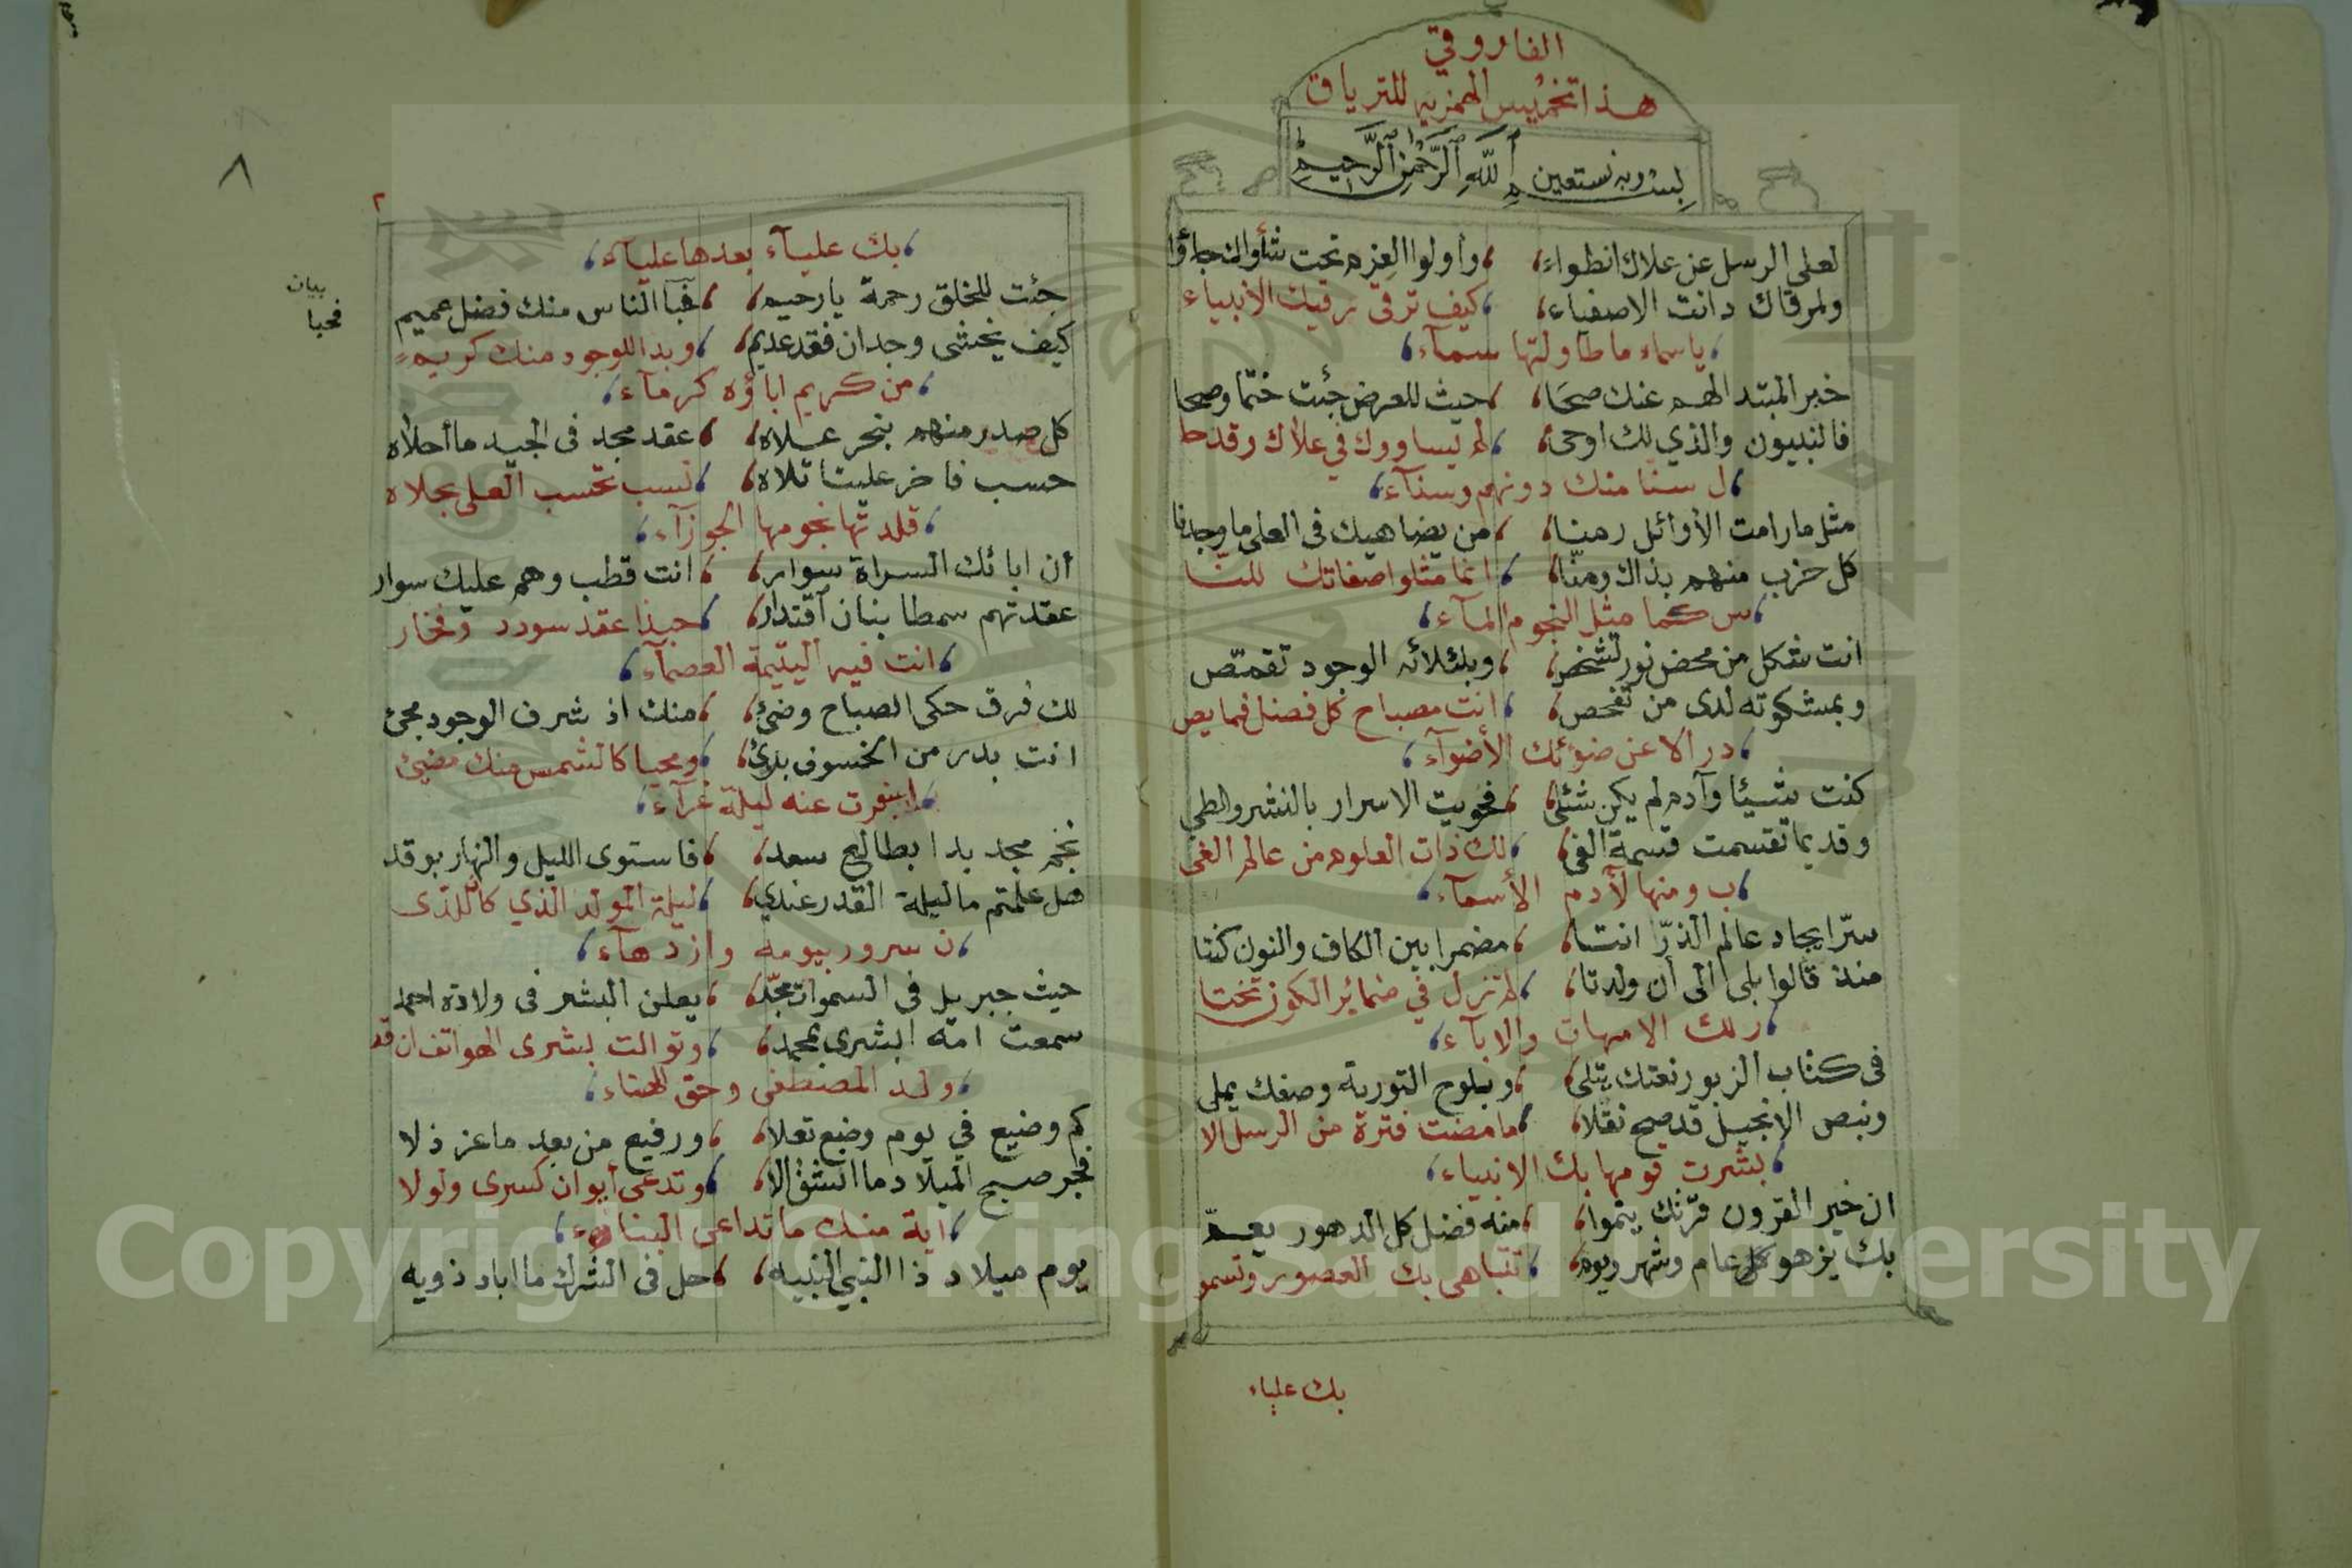 الفاروقي
هذا تخميس الهمزيه للترياق
بسم الله الرحمن الرحيم وبه نستعين
لعلى الرسل عن علاك انطواء، وأولوا العزم تحت شأوك جاؤا
ولمرقاك دانت الاصفياء، كيف ترقى رقيك الأنبياء
، ياسماء ما طاولتها سمآء،
خبر المبتدا لهم عنك صحا، حيث للعرض جئت ختما وصحا
فالنبيون والذي لك اوحى، لم يساووك في علاك وقد حا
، ل سنا منك دونهم وسنآء،
مثل ما رامت الأوائل رمنا، من يضاهيك في العلى ما وجدنا
كل حزب منهم بذاك ومنّا، انما مثلوا صفاتك للنا
، س كما مثل النجوم المآء،
انت شكل من محض نور تشخص، وبك لأئه الوجود تقمّص
وبمشكوته لدى من تفحص، انت مصباح كل فضل فما يص
، در الا عن ضوئك الأضوآء،
كنت شيئا وآدم لم يكن شئى، فحويت الاسرار بالنشر والطي
وقديما تقسمت قسمة الفى، لك ذات العلوم من عالم الغى
، ب ومنها لآدم الأسمآء،
سرّ ايجاد عالم الذرّ انتا، مضمرا بين الكاف والنون كنتا
منذ قالوا بلى الى أن ولدتا، لم تزل في ضمائر الكون تختا
، ر لك الامهات والابآء،
فى كتاب الزبور نعتك يتلى، وبلوح التورية وصفك يملى
وبنص الانجيل قد صح نقلا، ما مضت فترة من الرسل الا
، بشرت قومها بك الانبياء،
ان خير القرون قرنك ينموا، منه فضل كل الدهور يعمّ
بك يزهو كل عام وشهر ويوم، تتباهى بك العصور وتسمو
بك علياء
٨
٢
، بك عليآء بعدها عليآء،
جئت للخلق رحمة يارحيم، فحبا الناس منك فضل عميم
بيان
فحبا
كيف يخشى وجدان فقد عديم، وبدا للوجود منك كريم
، من كريم اباؤه كرمآء،
كل صدر منهم بنحر علاه، عقد مجد فى الجيد ما أحلاه
حسب فاخر علينا تلاه، نسب تحسب العلى بحلاه
، قلدتها نجومها الجوزآء،
أن ابائك السراة سوار، انت قطب وهم عليك سوار
عقدتهم سمطا بنان آقتدار، حبذا عقد سودد وفخار
، انت فيه اليتيمة العصمآء،
لك فرق حكى الصباح وضئ، منك اذ شرف الوجود مجئ
انت بدر من الخسوف برئ، ومحيا كالشمس منك مضيئ
، اسفرت عنه ليلة غرآء،
نجم مجد بدا بطالع سعد، فاستوى الليل والنهار بوقد
هل علمتم ما ليلة القدر عندي، ليلة المولد الذي كان للدى
، ن سرور بيومه وازدهآء،
حيث جبريل فى السموات مجّد، يعلن البشر فى ولادة احمد
سمعت امه البشرى بمحمد، وتوالت بشرى الهواتف ان قد
، ولد المصطفى وحق الهناء،
كم وضيع في يوم وضع تعلا، ورفيع من بعد ما عز ذلا
فجر صبح الميلاد ما انشق الا، وتدعى أيوان كسرى ولولا
، اية منك ما تداعى البناء،
يوم ميلاد ذا النبي النبيه، حل فى الشرك ما اباد ذويه
Copyright © King Saud University